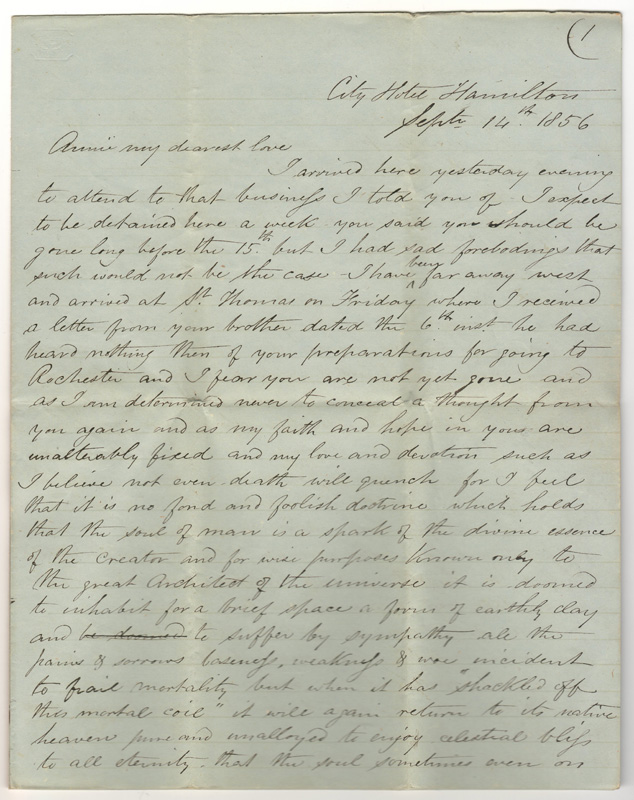 1
City Hotel Hamilton
Septr 14th. 1856
Annie my dearest love
I arrived here yesterday evening
to attend to that business I told you of I expect
to be detained here a week you said you should be
gone long before the 15th. but I had sad forebodings that
such would not be the case - I have been far away west
and arrived at St. Thomas on Friday where I received
a letter from your brother dated the 6th inst he had
heard nothing then of your preparations for going to
Rochester and I fear you are not yet gone and
as I am determined never to conceal a thought from
you again and as my faith and hope in you are
unalterably fixed and my love and devotion such as
I believe not even death will quench for I feel
that it is no fond and foolish doctrine which holds
that the soul of man is a spark of the divine essence
of the Creator and for wise purposes known only to
the great Architect of the universe it is doomed
to inhabit for a brief space a form of earthly clay
and be doomed to suffer by sympathy all the
pains & sorrows baseness, weakness & woe incident
to frail mortality but when it has "shackled off
this mortal coil" it will again return to its native
heaven pure and unalloyed to enjoy celestial bliss
to all eternity. that the soul sometimes even on